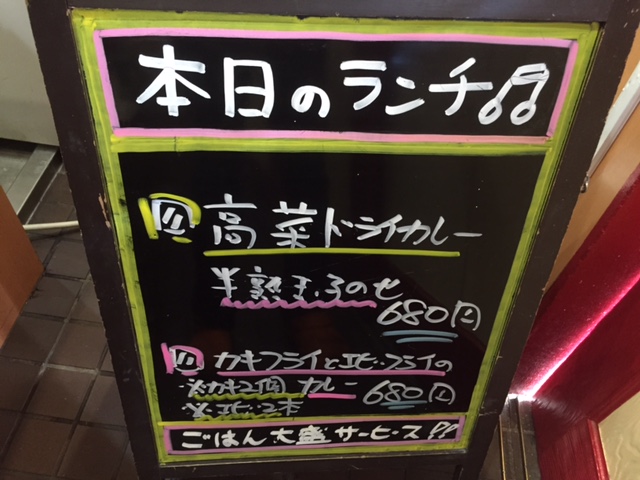 本日のランチ♫
A 高菜ドライカレー
半熟玉子のせ
680円
B カキフライとエビフライの
※カキ2個 カレー 680円
※エビ2本
ごはん大盛サービス!!